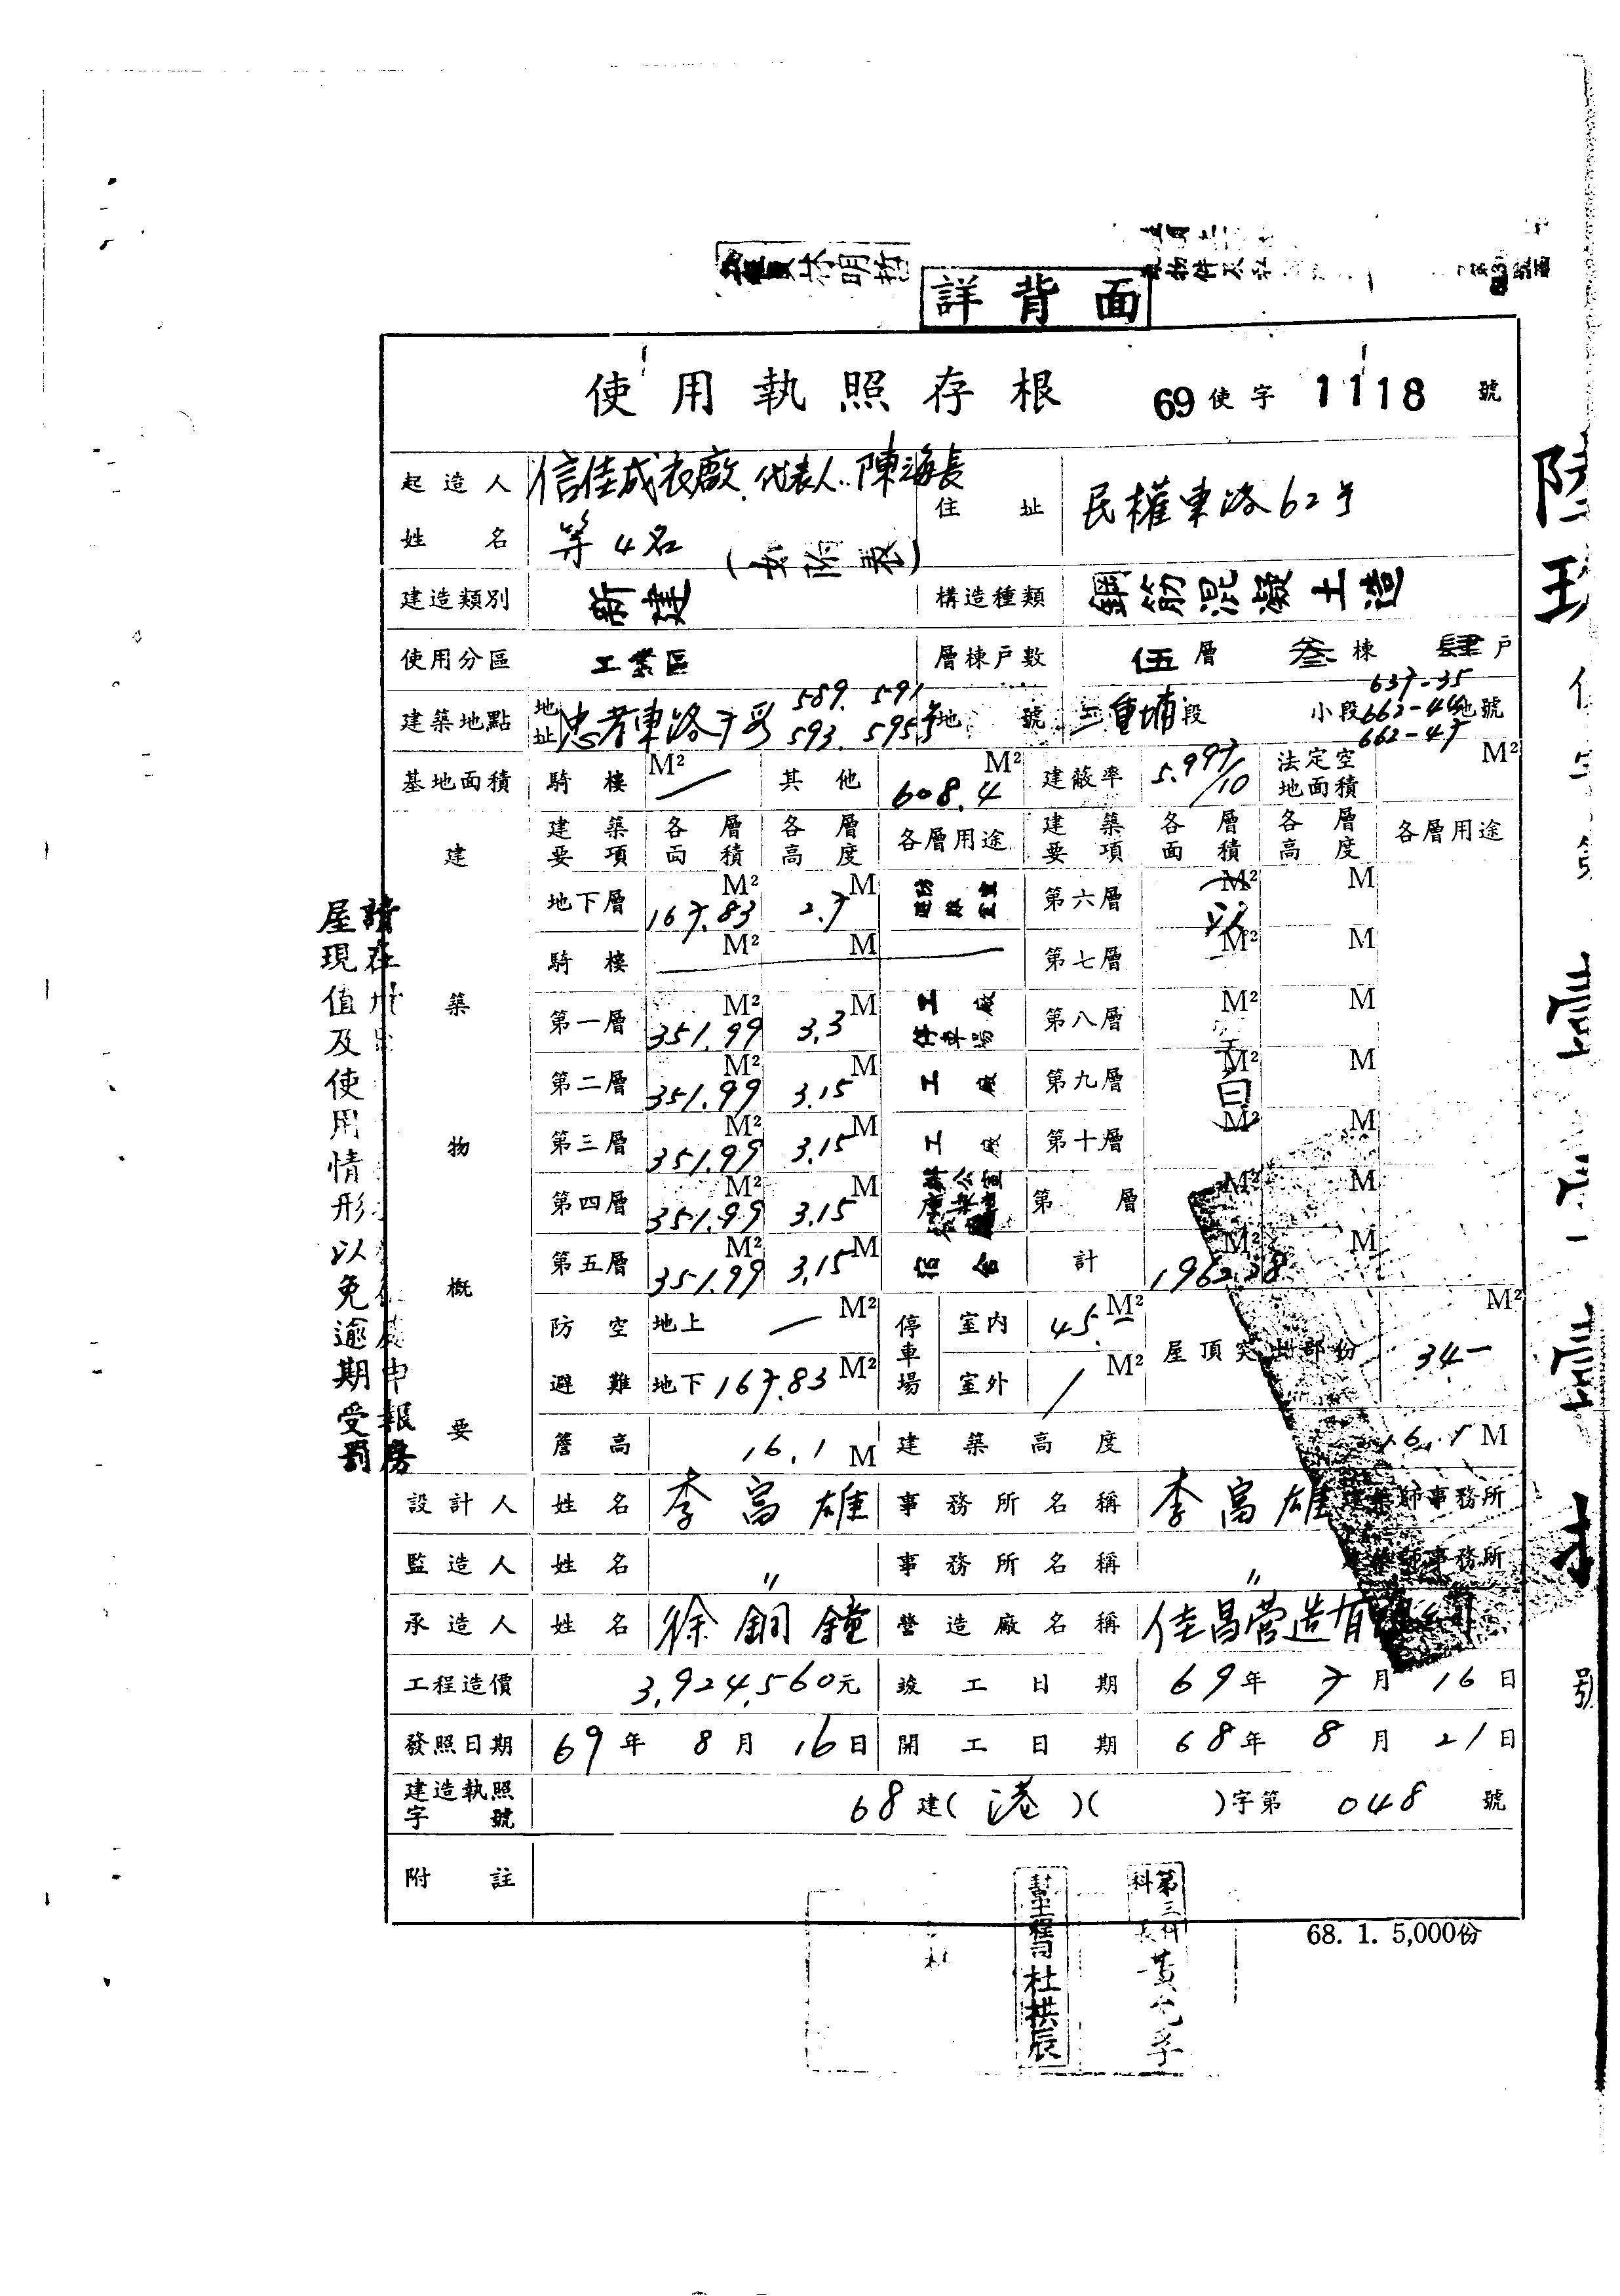 詳背面
使用執照存根 69使字1118號
起造人姓名 信佳成衣廠.代表人..陳海長等4名(如附表) 住址 民權東路62号
建造類別 新建 構造種類 鋼筋混凝土造
使用分區 工業區 層棟戶數 伍層 叁棟 肆戶
建築地點 地址 忠孝東路 589. 591 593. 595号 地號 三重埔段 小段 637-35 662-44 662-47 地號
基地面積 騎樓 M² 一 其他 608.4 M² 建蔽率 5.997/10 法定空地面積 M²
建築物概要 建築要項 各層面積 各層高度 各層用途 建築要項 各層面積 各層高度 各層用途
地下層 167.83 M² 2.7 M 第六層 M² M
騎樓 M² M 第七層 M² M
第一層 351.99 M² 3.3 M 工廠 停車場 第八層 M² M
第二層 351.99 M² 3.15 M 工廠 第九層 M² M
第三層 351.99 M² 3.15 M 工廠 第十層 M² M
第四層 351.99 M² 3.15 M 辦公室 第 層 M² M
第五層 351.99 M² 3.15 M 宿舍 計 M² M
防空避難 地上 一 M² 停車場 室內 45.一 M² 屋頂突出部份 34一 M²
地下 167.83 M² 室外 / M²
簷高 16.1 M 建築高度 M
設計人 姓名 李富雄 事務所名稱 李富雄建築師事務所
監造人 姓名 〃 事務所名稱 〃 建築師事務所
承造人 姓名 徐銅鐘 營造廠名稱 佳昌營造有
工程造價 3,924,560元 竣工日期 69年7月16日
發照日期 69年8月16日 開工日期 68年8月21日
建造執照字號 68建(港)( )字第048號
附註
68. 1. 5,000份
屋現值及使用情形以免逾期受罰
工程司杜拱辰
第三科科長黃